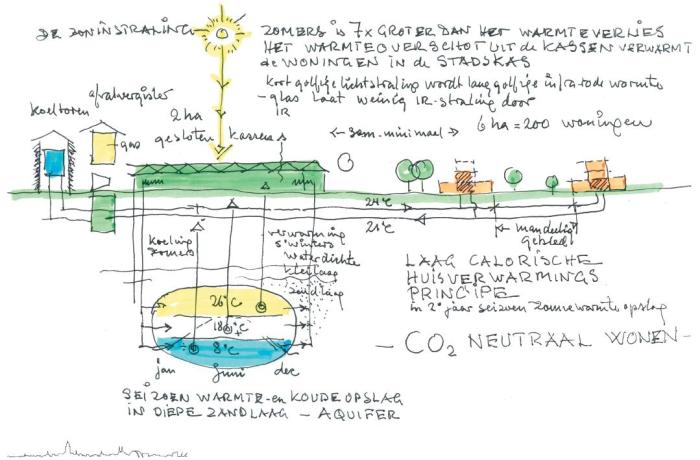 DE ZONINSTRALING
ZOMERS is 7x GROTER DAN HET WARMTEVERLIES
HET WARMTEOVERSCHOT UIT de KASSEN VERWARMT
de WONINGEN IN de STADSKAS
kortgolfige lichtstraling wordt langgolfige infrarode warmte
- glas laat weinig IR-straling door
IR
koeltoren
afvalvergister
gas
2 ha
gesloten kassen
5 km - minimaal
6 ha = 200 woningen
24°C
21°C
koeling
zomers
verwarming
s'winters
waterdichte
kleilaag
zandlaag
26°C
18°C
8°C
jan juni dec
LAAG CALORISCHE
HUISVERWARMINGS
PRINCIPE
zonnewarmte opslag
- CO2 NEUTRAAL WONEN -
SEIZOEN WARMTE- en KOUDEOPSLAG
IN DIEPE ZANDLAAG - AQUIFER